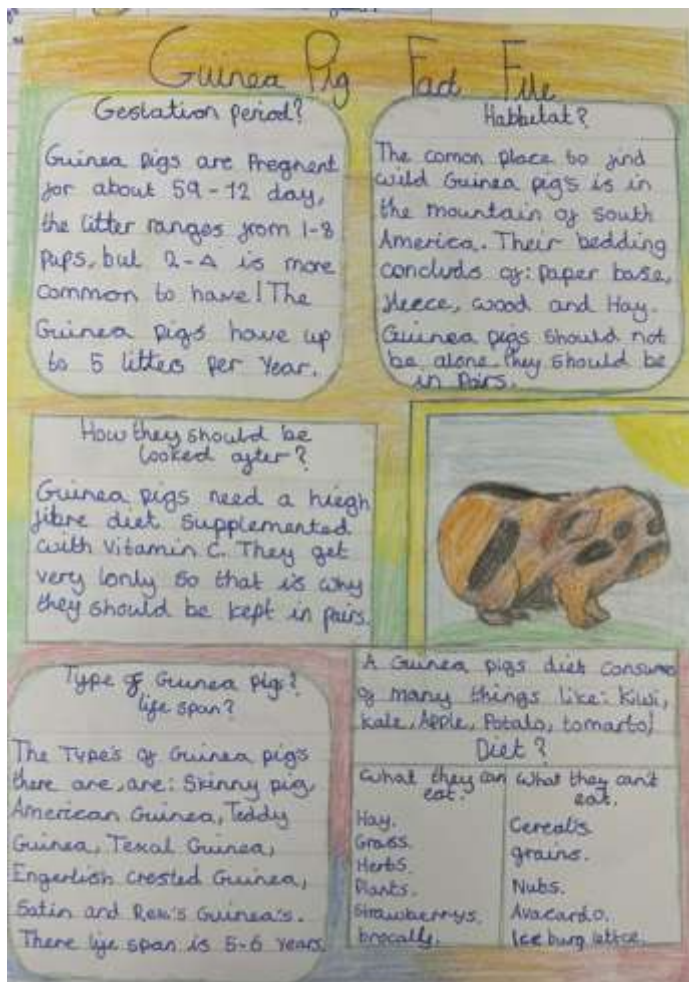 Guinea Pig Fact File
Gestation period?
Guinea pigs are Pregnent
for about 59-72 day,
the litter ranges from 1-8
pups, but 2-4 is more
common to have! The
Guinea pigs have up
to 5 litters per Year.
Habbitat?
The comon place to find
wild Guinea pigs is in
the mountain of south
America. Their bedding
concluds of: paper base,
fleece, wood and Hay.
Guinea pigs should not
be alone. they should be
in Pairs.
How they should be
looked after?
Guinea pigs need a hiegh
fibre diet supplemented
with Vitamin C. They get
very lonly so that is why
they should be kept in pairs.
Type of Guinea pigs?
life span?
The Type's of Guinea pigs
there are, are: Skinny pig,
American Guinea, Teddy
Guinea, Texal Guinea,
Engerlish crested Guinea,
Satin and Rex's Guinea's.
There life span is 5-6 years.
A Guinea pigs diet consumes
of many things like: Kiwi,
kale, Apple, Potato, tomarto!
Diet?
What they can
eat.
Hay.
Grass.
Herbs.
Plants.
Strawberrys.
brocally.
What they can't
eat.
Cereals.
grains.
Nuts.
Avacardo.
Ice burg lettce.